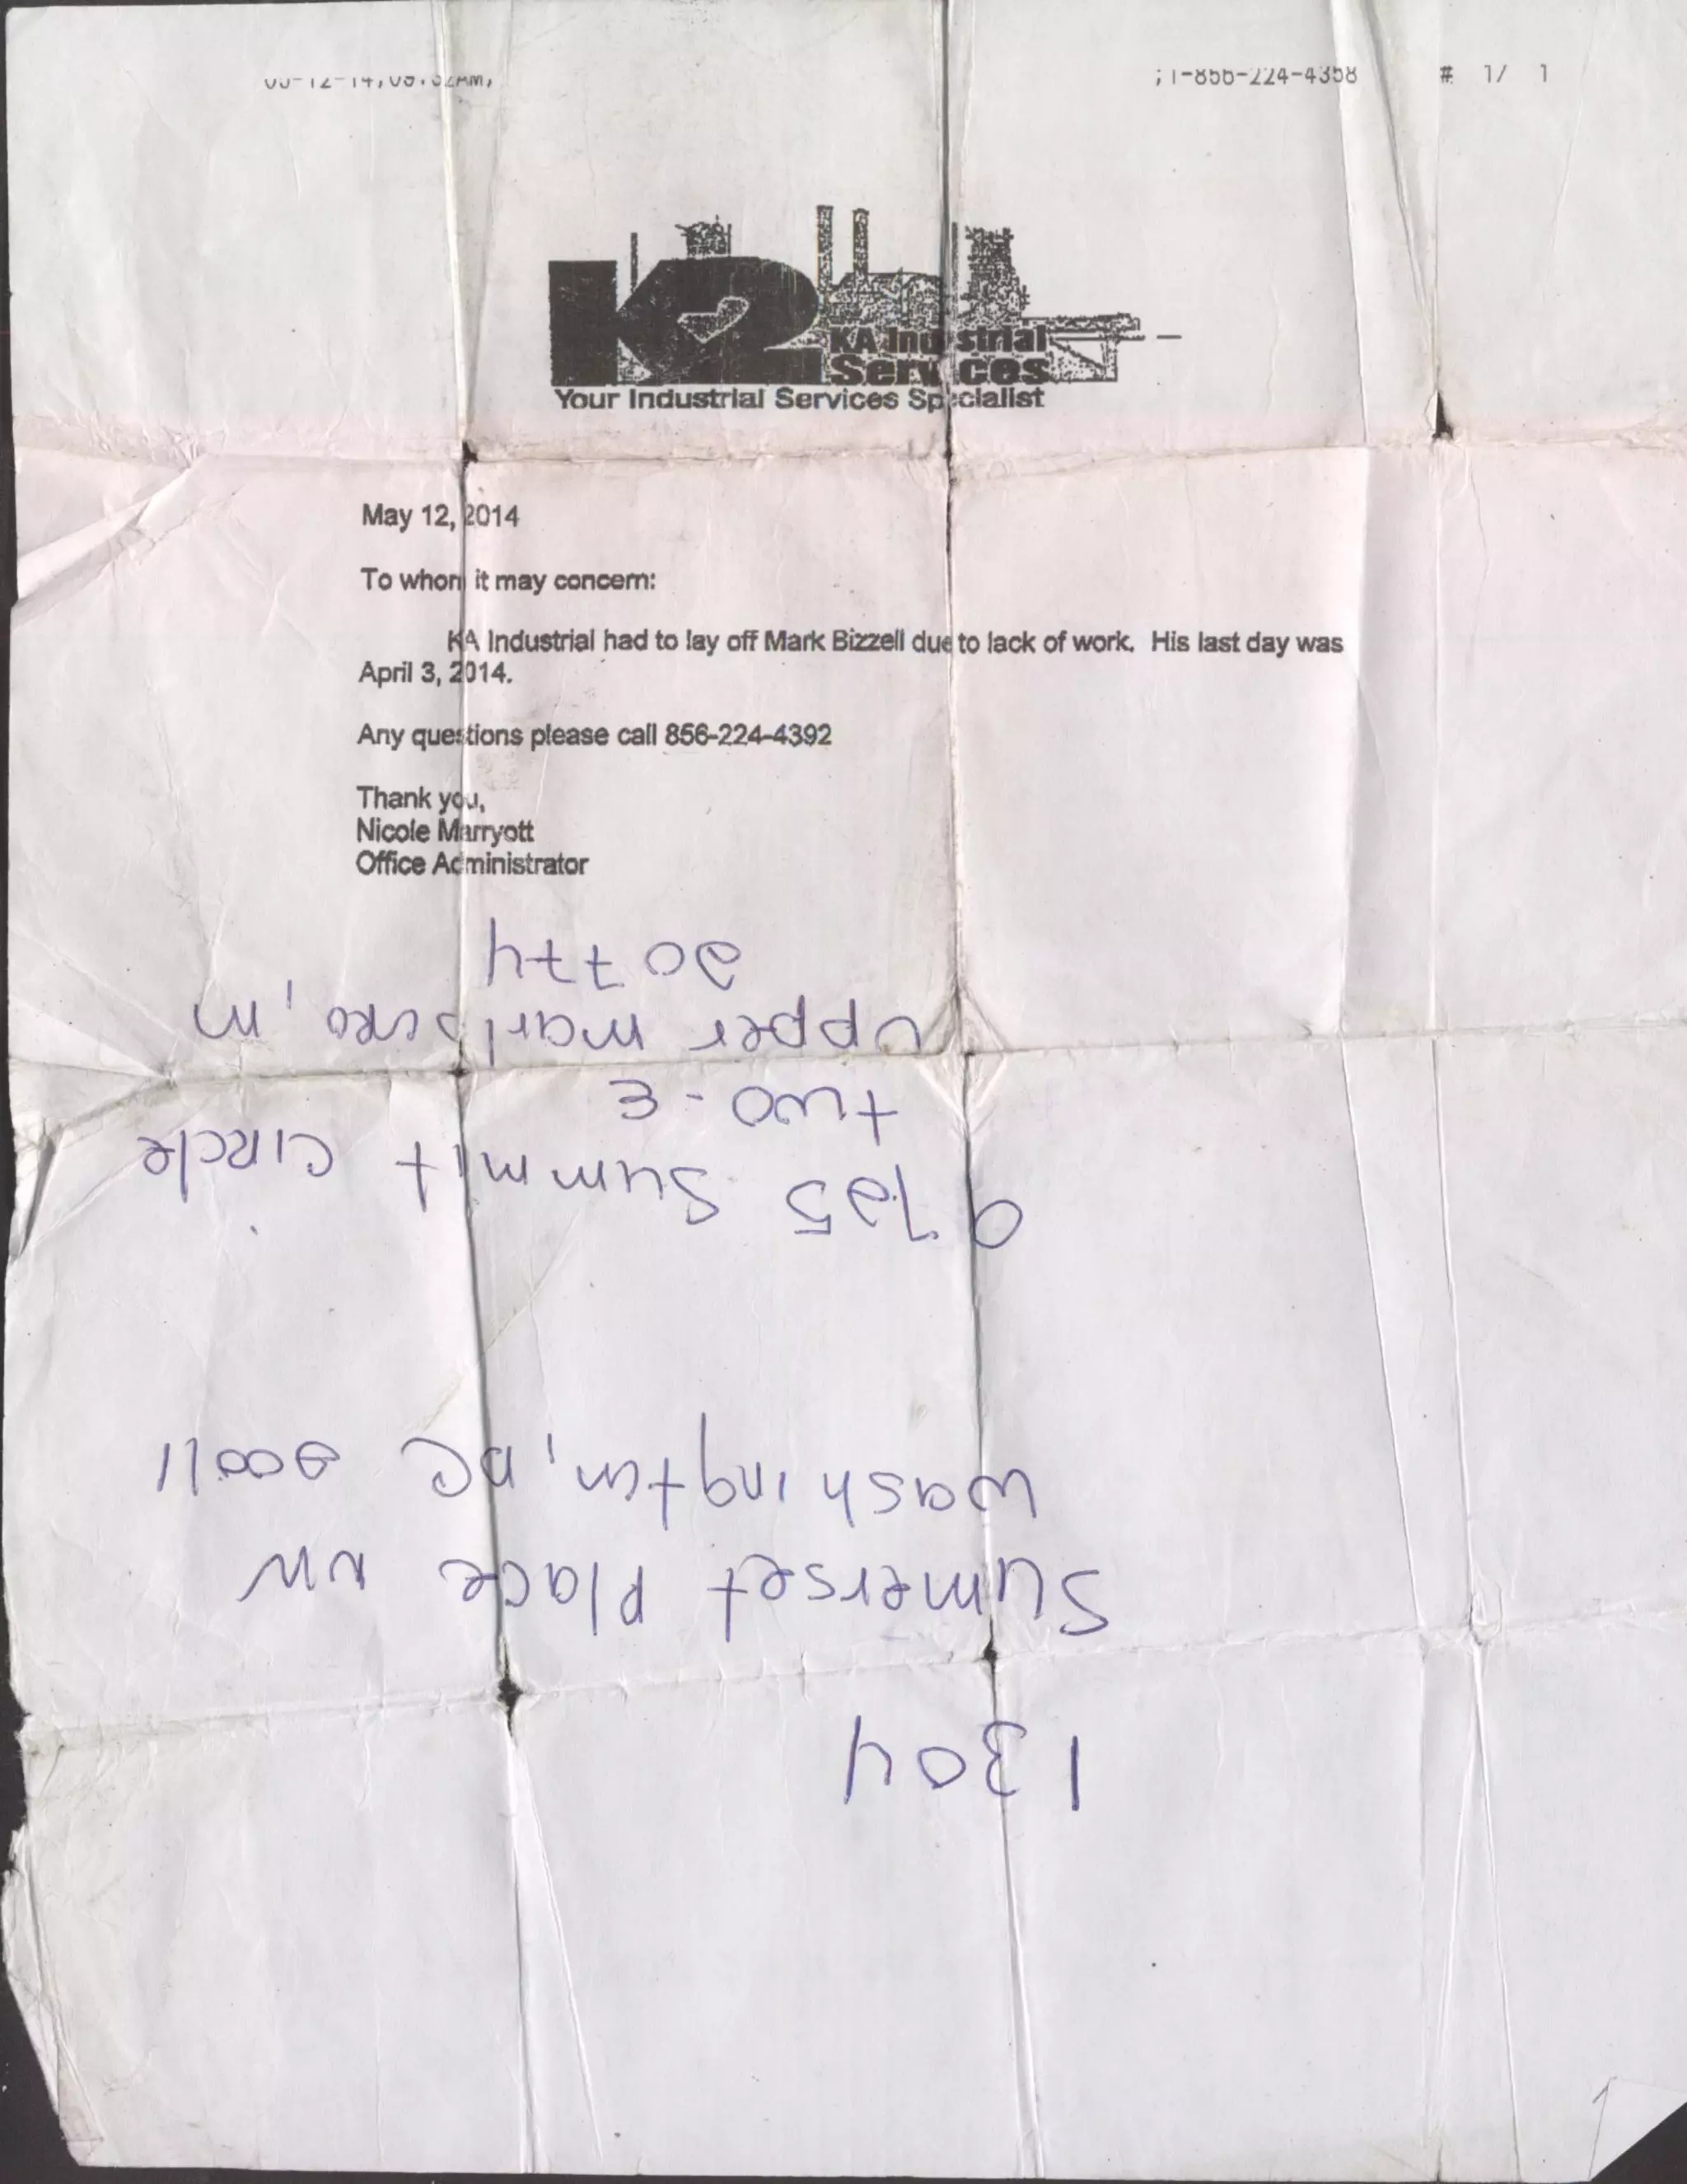 05-12-14;09:02AM; ;1-856-224-4358 # 1/ 1
K2
KA Industrial
Services
Your Industrial Services Specialist
May 12, 2014
To whom it may concern:
KA Industrial had to lay off Mark Bizzell due to lack of work. His last day was
April 3, 2014.
Any questions please call 856-224-4392
Thank you,
Nicole Marryott
Office Administrator
1304
Sumerset Place NW
Washington, DC 20011
9725 Summit Circle
two - E
Upper marlboro, m
20774